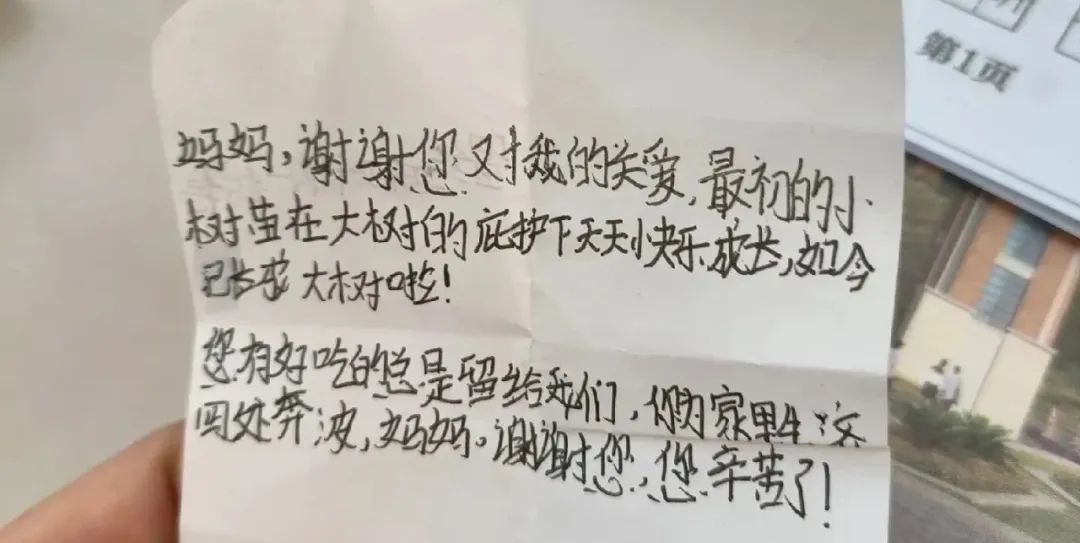 妈妈，谢谢您对我的关爱，最初的小
树苗在大树的庇护下天天快乐成长，如今
已长成大树啦！
您有好吃的总是留给我们，你为家里生活
四处奔波，妈妈。谢谢您，您辛苦了！
第1页